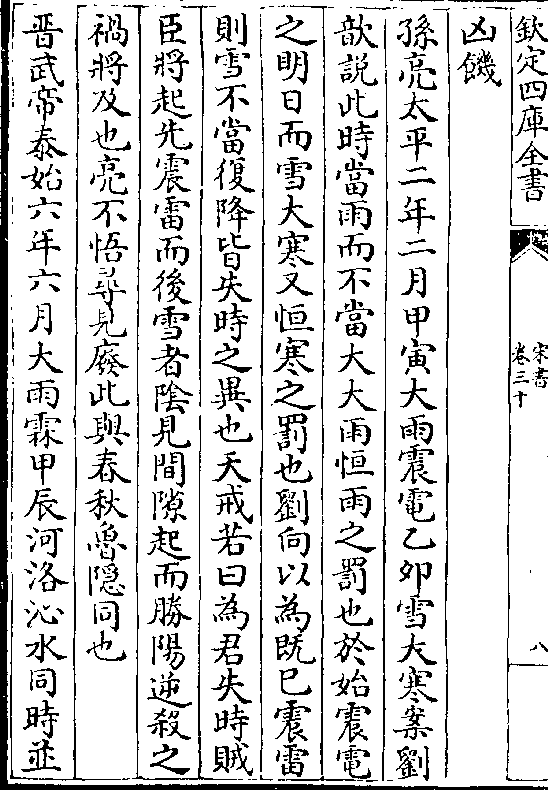 欽定四庫全書
宋書
卷三十
八
凶饑
孫亮太平二年二月甲寅大雨震電乙卯雪大寒案劉
歆説此時當雨而不當大大雨恒雨之罰也於始震電
之明日而雪大寒又恒寒之罰也劉向以為既已震雷
則雪不當復降皆失時之異也天戒若曰為君失時賊
臣將起先震雷而後雪者陰見間隙起而勝陽逆殺之
禍將及也亮不悟尋見廢此與春秋魯隠同也
晉武帝泰始六年六月大雨霖甲辰河洛沁水同時並